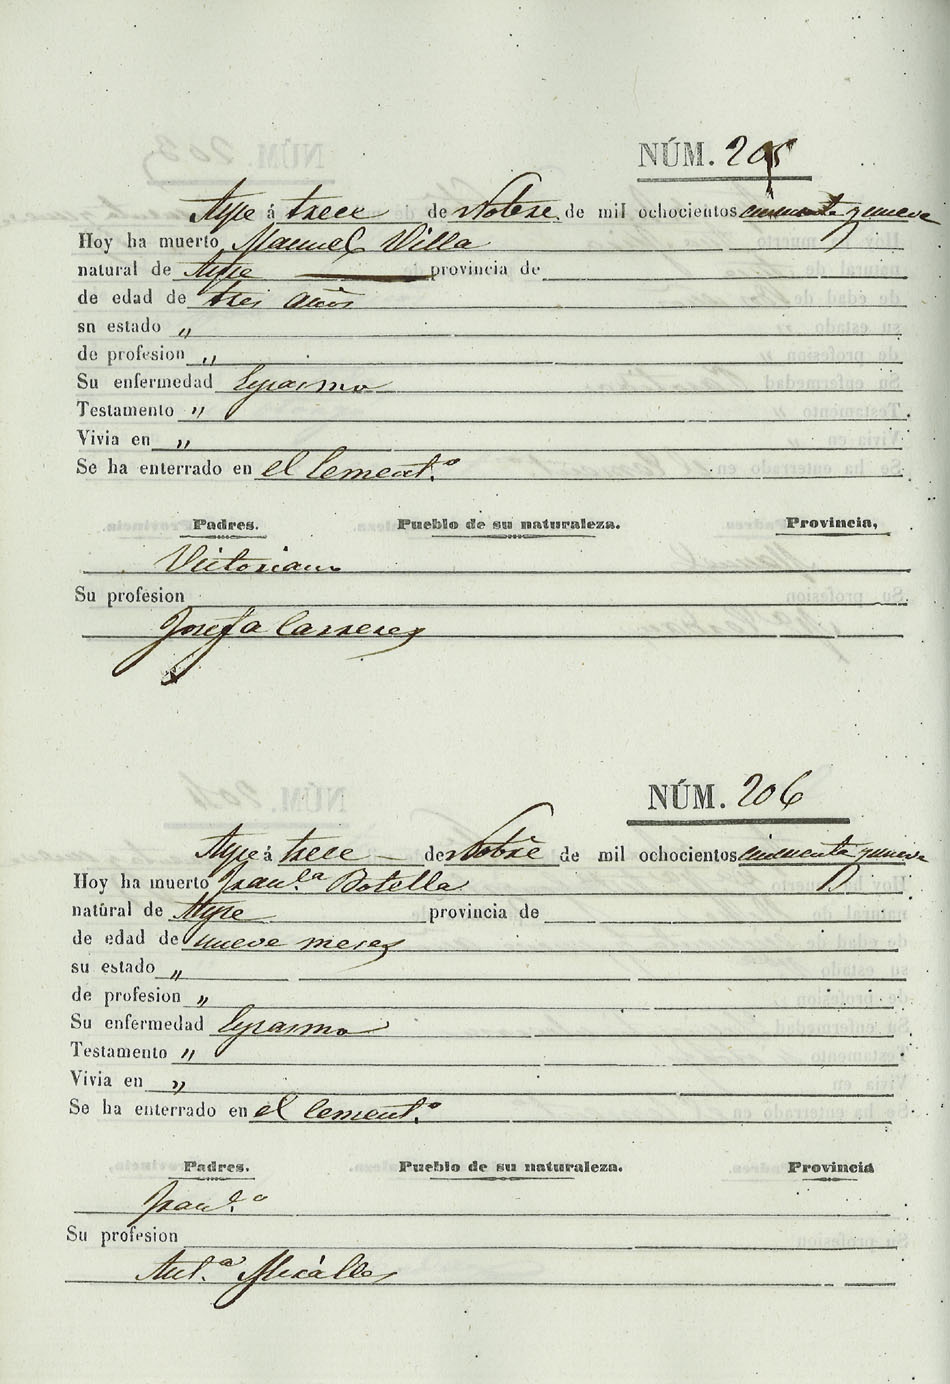 NÚM. 205
Aspe á trece de Nobre. de mil ochocientos cincuenta y nueve
Hoy ha muerto Manuel Villa
natural de Aspe provincia de
de edad de tres años
sn estado „
de profesion „
Su enfermedad Espasmo
Testamento „
Vivia en „
Se ha enterrado en el Cement.º
Padres. Pueblo de su naturaleza. Provincia,
Victoriano
Su profesion
Josefa Carreres
NÚM. 206
Aspe á trece de Nobre de mil ochocientos cincuenta y nueve
Hoy ha muerto Fran.ca Botella
natural de Aspe provincia de
de edad de nueve meses
su estado „
de profesion „
Su enfermedad Espasmo
Testamento „
Vivia en „
Se ha enterrado en el Cement.º
Padres. Pueblo de su naturaleza. Provincia
Fran.co
Su profesion
Ant.ª Mirálles